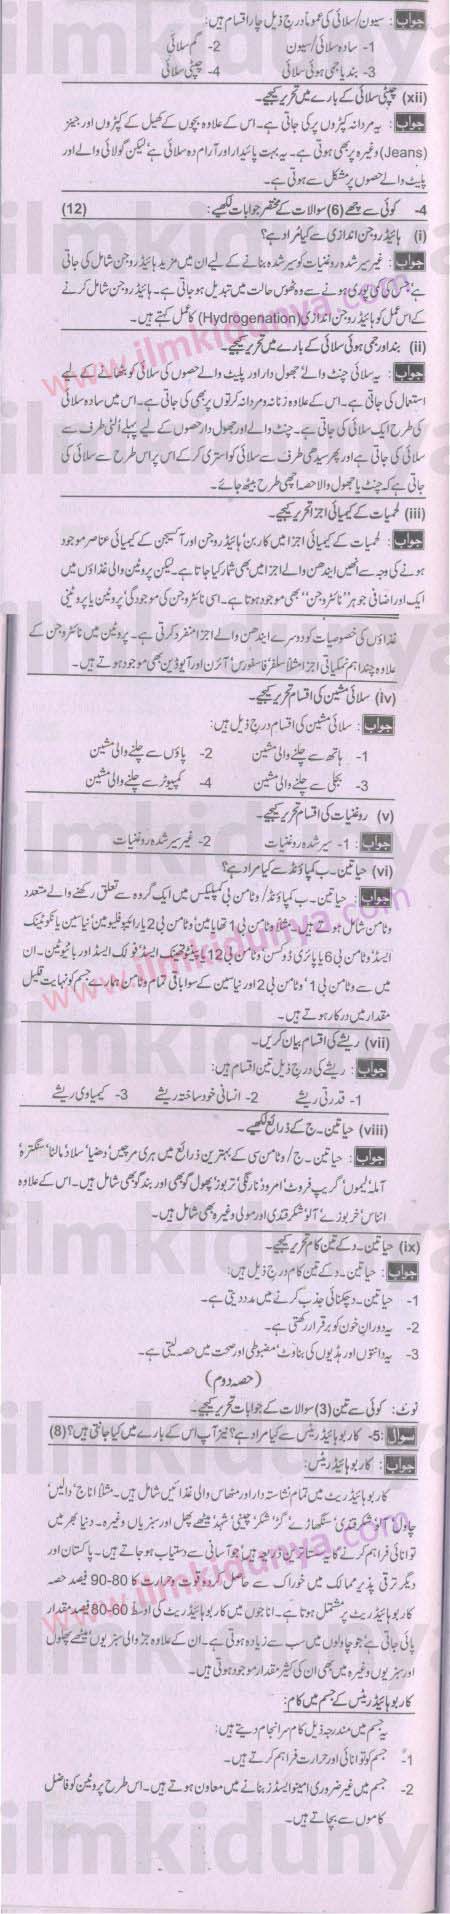 جواب: سیون/سلائی کی عموماً درج ذیل چار اقسام ہیں:
1- سادہ سلائی/سیون 2- گم سلائی
3- بند یا جمی ہوئی سلائی 4- چپٹی سلائی
(xii) چپٹی سلائی کے بارے میں تحریر کیجیے۔
جواب: یہ مردانہ کپڑوں پر کی جاتی ہے۔ اس کے علاوہ بچوں کے کھیل کے کپڑوں اور جینز
(Jeans) وغیرہ پر بھی ہوتی ہے۔ یہ بہت پائیدار اور آرام دہ سلائی ہے، لیکن گولائی والے اور
پلیٹ والے حصوں پر مشکل سے ہوتی ہے۔
4- کوئی سے چھے (6) سوالات کے مختصر جوابات لکھیے: (12)
(i) ہائیڈروجن اندازی سے کیا مراد ہے؟
جواب: غیر سیر شدہ روغنیات کو سیر شدہ بنانے کے لیے ان میں مزید ہائیڈروجن شامل کی جاتی
ہے، جس کی کمی پوری ہونے سے وہ ٹھوس حالت میں تبدیل ہو جاتی ہے۔ ہائیڈروجن شامل کرنے
کے اس عمل کو ہائیڈروجن اندازی (Hydrogenation) کا عمل کہتے ہیں۔
(ii) بند اور جمی ہوئی سلائی کے بارے میں تحریر کیجیے۔
جواب: یہ سلائی چنٹ والے، جھول دار اور پلیٹ والے حصوں کی سلائی کو بٹھانے کے لیے
استعمال کی جاتی ہے۔ اس کے علاوہ زنانہ و مردانہ کرتوں پر بھی کی جاتی ہے۔ اس میں سادہ سلائی
کی طرح ایک سلائی کی جاتی ہے۔ چنٹ والے اور جھول دار حصوں کے لیے پہلے اُلٹی طرف سے
سلائی کی جاتی ہے اور پھر سیدھی طرف سے سلائی کو استری کر کے اس پر اس طرح سے سلائی کی
جاتی ہے کہ چنٹ یا جھول والا حصہ اچھی طرح بیٹھ جائے۔
(iii) لحمیات کے کیمیائی اجزا تحریر کیجیے۔
جواب: لحمیات کے کیمیائی اجزا میں کاربن، ہائیڈروجن اور آکسیجن کے کیمیائی عناصر موجود
ہونے کی وجہ سے انھیں ایندھن والے اجزا میں بھی شمار کیا جاتا ہے۔ لیکن پروٹین والی غذاؤں میں
ایک اور اضافی جوہر "نائٹروجن" بھی موجود ہوتا ہے۔ اسی نائٹروجن کی موجودگی، پروٹین یا پروٹینی
غذاؤں کی خصوصیات کو دوسرے ایندھن والے اجزا سے منفرد کرتی ہے۔ پروٹین میں نائٹروجن کے
علاوہ چند اہم نمکیاتی اجزا مثلاً سلفر، فاسفورس، آئرن اور آیوڈین بھی موجود ہوتے ہیں۔
(iv) سلائی مشین کی اقسام تحریر کیجیے۔
جواب: سلائی مشین کی اقسام درج ذیل ہیں:
1- ہاتھ سے چلنے والی مشین 2- پاؤں سے چلنے والی مشین
3- بجلی سے چلنے والی مشین 4- کمپیوٹر سے چلنے والی مشین
(v) روغنیات کی اقسام تحریر کیجیے۔
جواب: 1- سیر شدہ روغنیات 2- غیر سیر شدہ روغنیات
(vi) حیاتین۔ب کمپاؤنڈ سے کیا مراد ہے؟
جواب: حیاتین۔ب کمپاؤنڈ/ وٹامن بی کمپلیکس میں ایک گروہ سے تعلق رکھنے والے متعدد
وٹامن شامل ہوتے ہیں۔ مثلاً وٹامن بی 1 تھایامین، وٹامن بی 2 یا رائبوفلیومین، نیاسین یا نکوٹینک
ایسڈ، وٹامن بی 6 یا پائری ڈوکسن، وٹامن بی 12 یا پینٹوتھینک ایسڈ، فولک ایسڈ اور بائیوٹین۔ ان
میں سے وٹامن بی 1، وٹامن بی 2 اور نیاسین کے سوا باقی تمام وٹامن ہمارے جسم کو نہایت قلیل
مقدار میں درکار ہوتے ہیں۔
(vii) ریشے کی اقسام بیان کریں۔
جواب: ریشے کی درج ذیل تین اقسام ہیں:
1- قدرتی ریشے 2- انسانی خود ساختہ ریشے 3- کیمیاوی ریشے
(viii) حیاتین۔ج کے ذرائع لکھیے۔
جواب: حیاتین۔ج/ وٹامن سی کے بہترین ذرائع میں ہری مرچیں، دھنیا، سلاد، مالٹا، سنگترہ،
آملہ، لیموں، گریپ فروٹ، امرود، نارنگی، تربوز، پھول گوبھی اور بند گوبھی شامل ہیں۔ اس کے علاوہ
انناس، خربوزے، آلو، شکر قندی اور مولی وغیرہ بھی شامل ہیں۔
(ix) حیاتین۔د کے تین کام تحریر کیجیے۔
جواب: حیاتین۔د کے تین کام درج ذیل ہیں:
1- حیاتین۔د چکنائی جذب کرنے میں مدد دیتی ہے۔
2- یہ دورانِ خون کو برقرار رکھتی ہے۔
3- یہ دانتوں اور ہڈیوں کی بناوٹ، مضبوطی اور صحت میں حصہ لیتی ہے۔
(حصہ دوم)
نوٹ: کوئی سے تین (3) سوالات کے جوابات تحریر کیجیے۔
سوال 5- کاربوہائیڈریٹس سے کیا مراد ہے؟ نیز آپ اس کے بارے میں کیا جانتی ہیں؟ (8)
جواب: کاربوہائیڈریٹس:
کاربوہائیڈریٹ میں تمام نشاستہ دار اور مٹھاس والی غذائیں شامل ہیں۔ مثلاً اناج، دالیں،
چاول، آلو، شکر قندی، سنگھاڑے، گڑ، شکر، چینی، شہد، میٹھے پھل اور سبزیاں وغیرہ۔ دنیا بھر میں
توانائی فراہم کرنے کا یہ سستا ترین ذریعہ ہیں، جو آسانی سے دستیاب ہو جاتے ہیں۔ پاکستان اور
دیگر ترقی پذیر ممالک میں خوراک سے حاصل کردہ قوت و حرارت کا 80-90 فیصد حصہ
کاربوہائیڈریٹ پر مشتمل ہوتا ہے۔ اناجوں میں کاربوہائیڈریٹ کی اوسط 60-80 فیصد مقدار
پائی جاتی ہے جو چاولوں میں سب سے زیادہ ہوتی ہے۔ ان کے علاوہ جڑ والی سبزیوں، میٹھے پھلوں
اور سبزیوں وغیرہ میں بھی ان کی کثیر مقدار موجود ہوتی ہیں۔
کاربوہائیڈریٹس کے جسم میں کام:
یہ جسم میں مندرجہ ذیل کام سرانجام دیتے ہیں:
1- جسم کو توانائی اور حرارت فراہم کرتے ہیں۔
2- جسم میں غیر ضروری امینو ایسڈز بنانے میں معاون ہوتے ہیں۔ اس طرح پروٹین کو فاضل
کاموں سے بچاتے ہیں۔